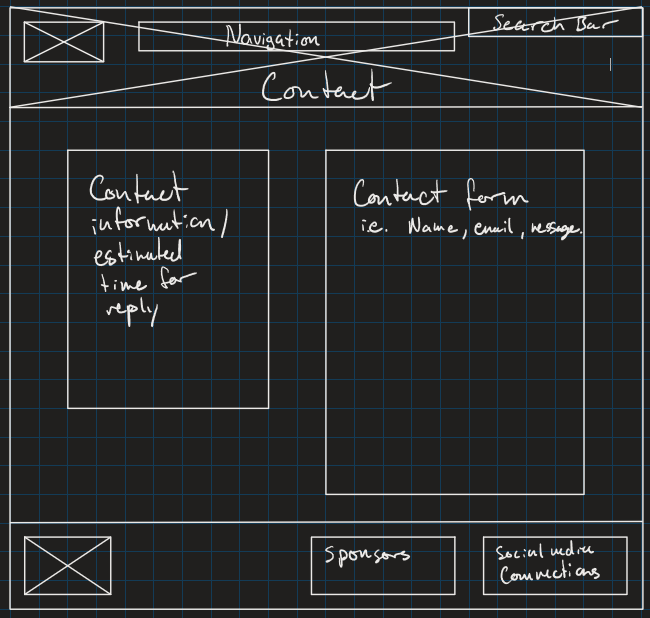 Navigation
Search Bar
Contact
Contact
information/
estimated
time for
reply
Contact form
i.e. Name, email, message.
Sponsors
Social media
Connections